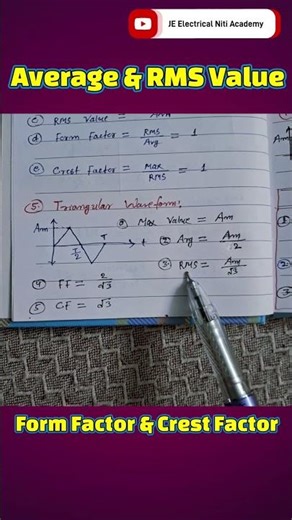 JE Electrical Niti Academy
Average & RMS Value
(c) RMS Value = Am
(d) Form Factor = RMS/Avg = 1
(e) Crest Factor = Max/RMS = 1
(5) Triangular Waveform:
(1) Max Value = Am
Am
T/2
T
t
(2) Avg = Am/2
(3) RMS = Am/√3
(4) FF = 2/√3
(5) CF = √3
Form Factor & Crest Factor